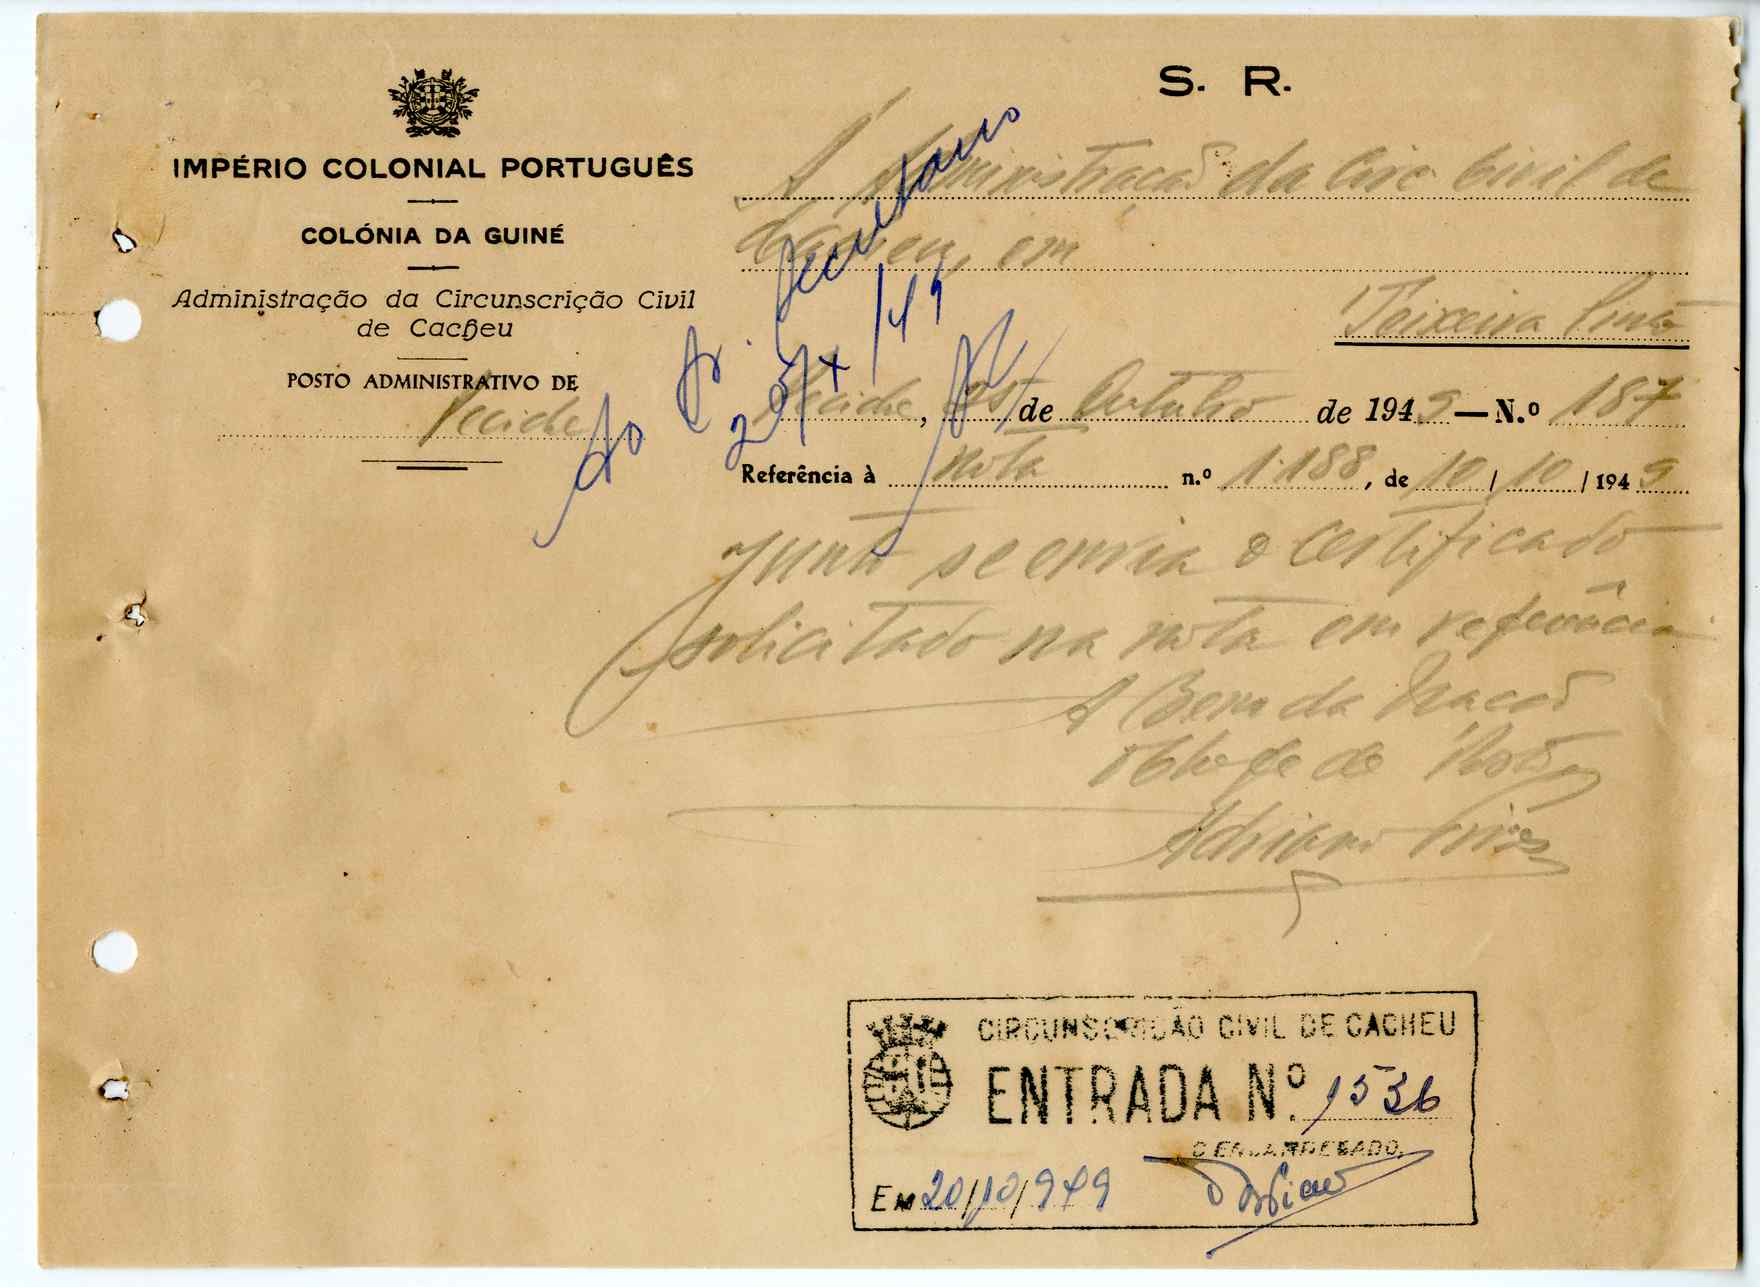 S. R.
IMPÉRIO COLONIAL PORTUGUÊS
COLÓNIA DA GUINÉ
Administração da Circunscrição Civil
de Cacheu
POSTO ADMINISTRATIVO DE
Pecixe
À Administração da Circ Civil de
Cacheu, em
Teixeira Pinto
Ao Sr. Secretario
/X/49
Pecixe, de Outubro de 1949 — N.º 187
Referência à nota n.º 1.188, de 10/10/1949
Junto se envia o certificado
solicitado na nota em referência
A Bem da Nação
O Chefe de Posto
Adriano Pires
CIRCUNSCRIÇÃO CIVIL DE CACHEU
ENTRADA N.º 1536
O ENCARREGADO,
EM 20/10/949